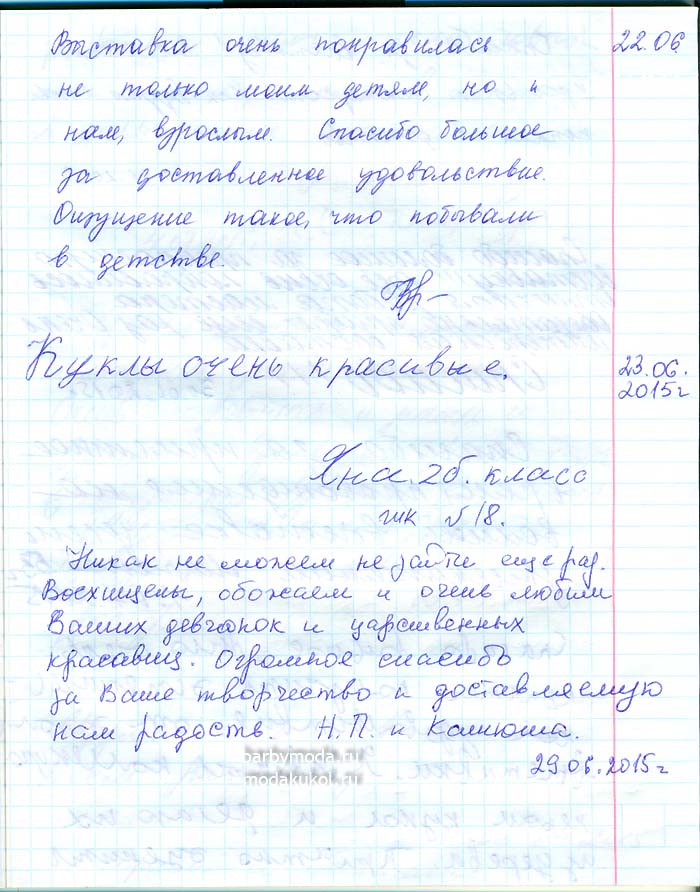 Выставка очень понравилась 22.06
не только моим детям, но и
нам, взрослым. Спасибо большое
за доставленное удовольствие.
Ощущение такое, что побывали
в детстве.
Куклы очень красивые. 23.06.
2015г
Яна. 2б. класс
шк №18.
Никак не можем не зайти еще раз.
Восхищены, обожаем и очень любим
Ваших девчонок и царственных
красавиц. Огромное спасибо
за Ваше творчество и доставляемую
нам радость. Н.П. и Камюша.
29.06.2015г
barbymoda.ru
modakukol.ru